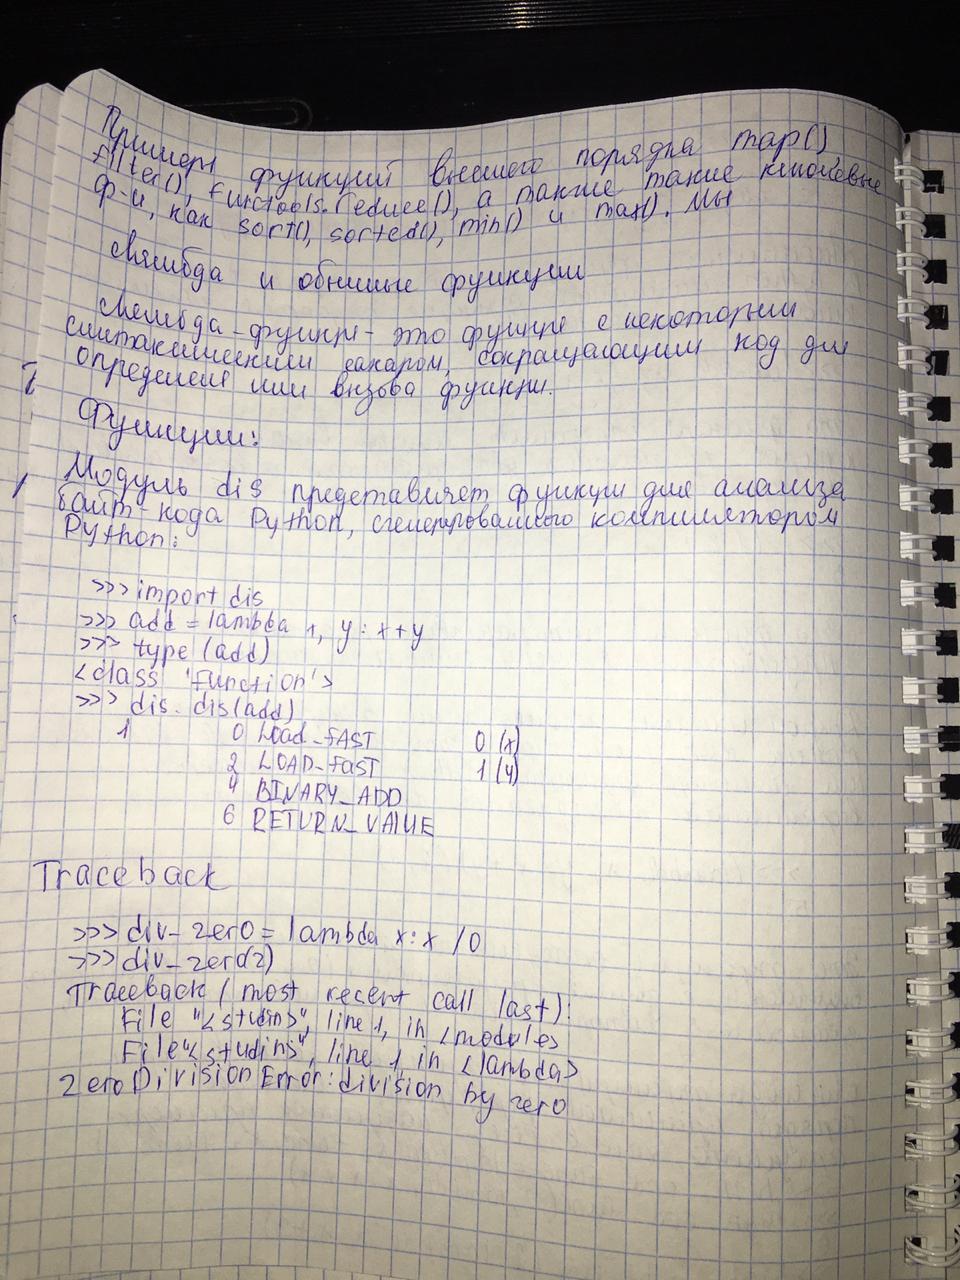 Примеры функций высшего порядка map()
filter(), functools.reduce(), а также такие ключевые
ф-и, как sort(), sorted(), min() и max(). Мы
Лямбда и обычные функции
Лямбда-функция - это функция с некоторым
синтаксическим сахаром, сокращающим код для
определения или вызова функции.
Функции:
Модуль dis представляет функции для анализа
байт-кода Python, сгенерированного компилятором
Python:
>>> import dis
>>> add = lambda x, y: x+y
>>> type (add)
<class 'function'>
>>> dis.dis(add)
1 0 Load_FAST 0 (x)
2 LOAD_FAST 1 (y)
4 BINARY_ADD
6 RETURN_VALUE
Traceback
>>> div_zero = lambda x: x / 0
>>> div_zero(2)
Traceback (most recent call last):
File "<studin>", line 1, in <module>
File "<studin>", line 1 in <lambda>
ZeroDivisionError: division by zero